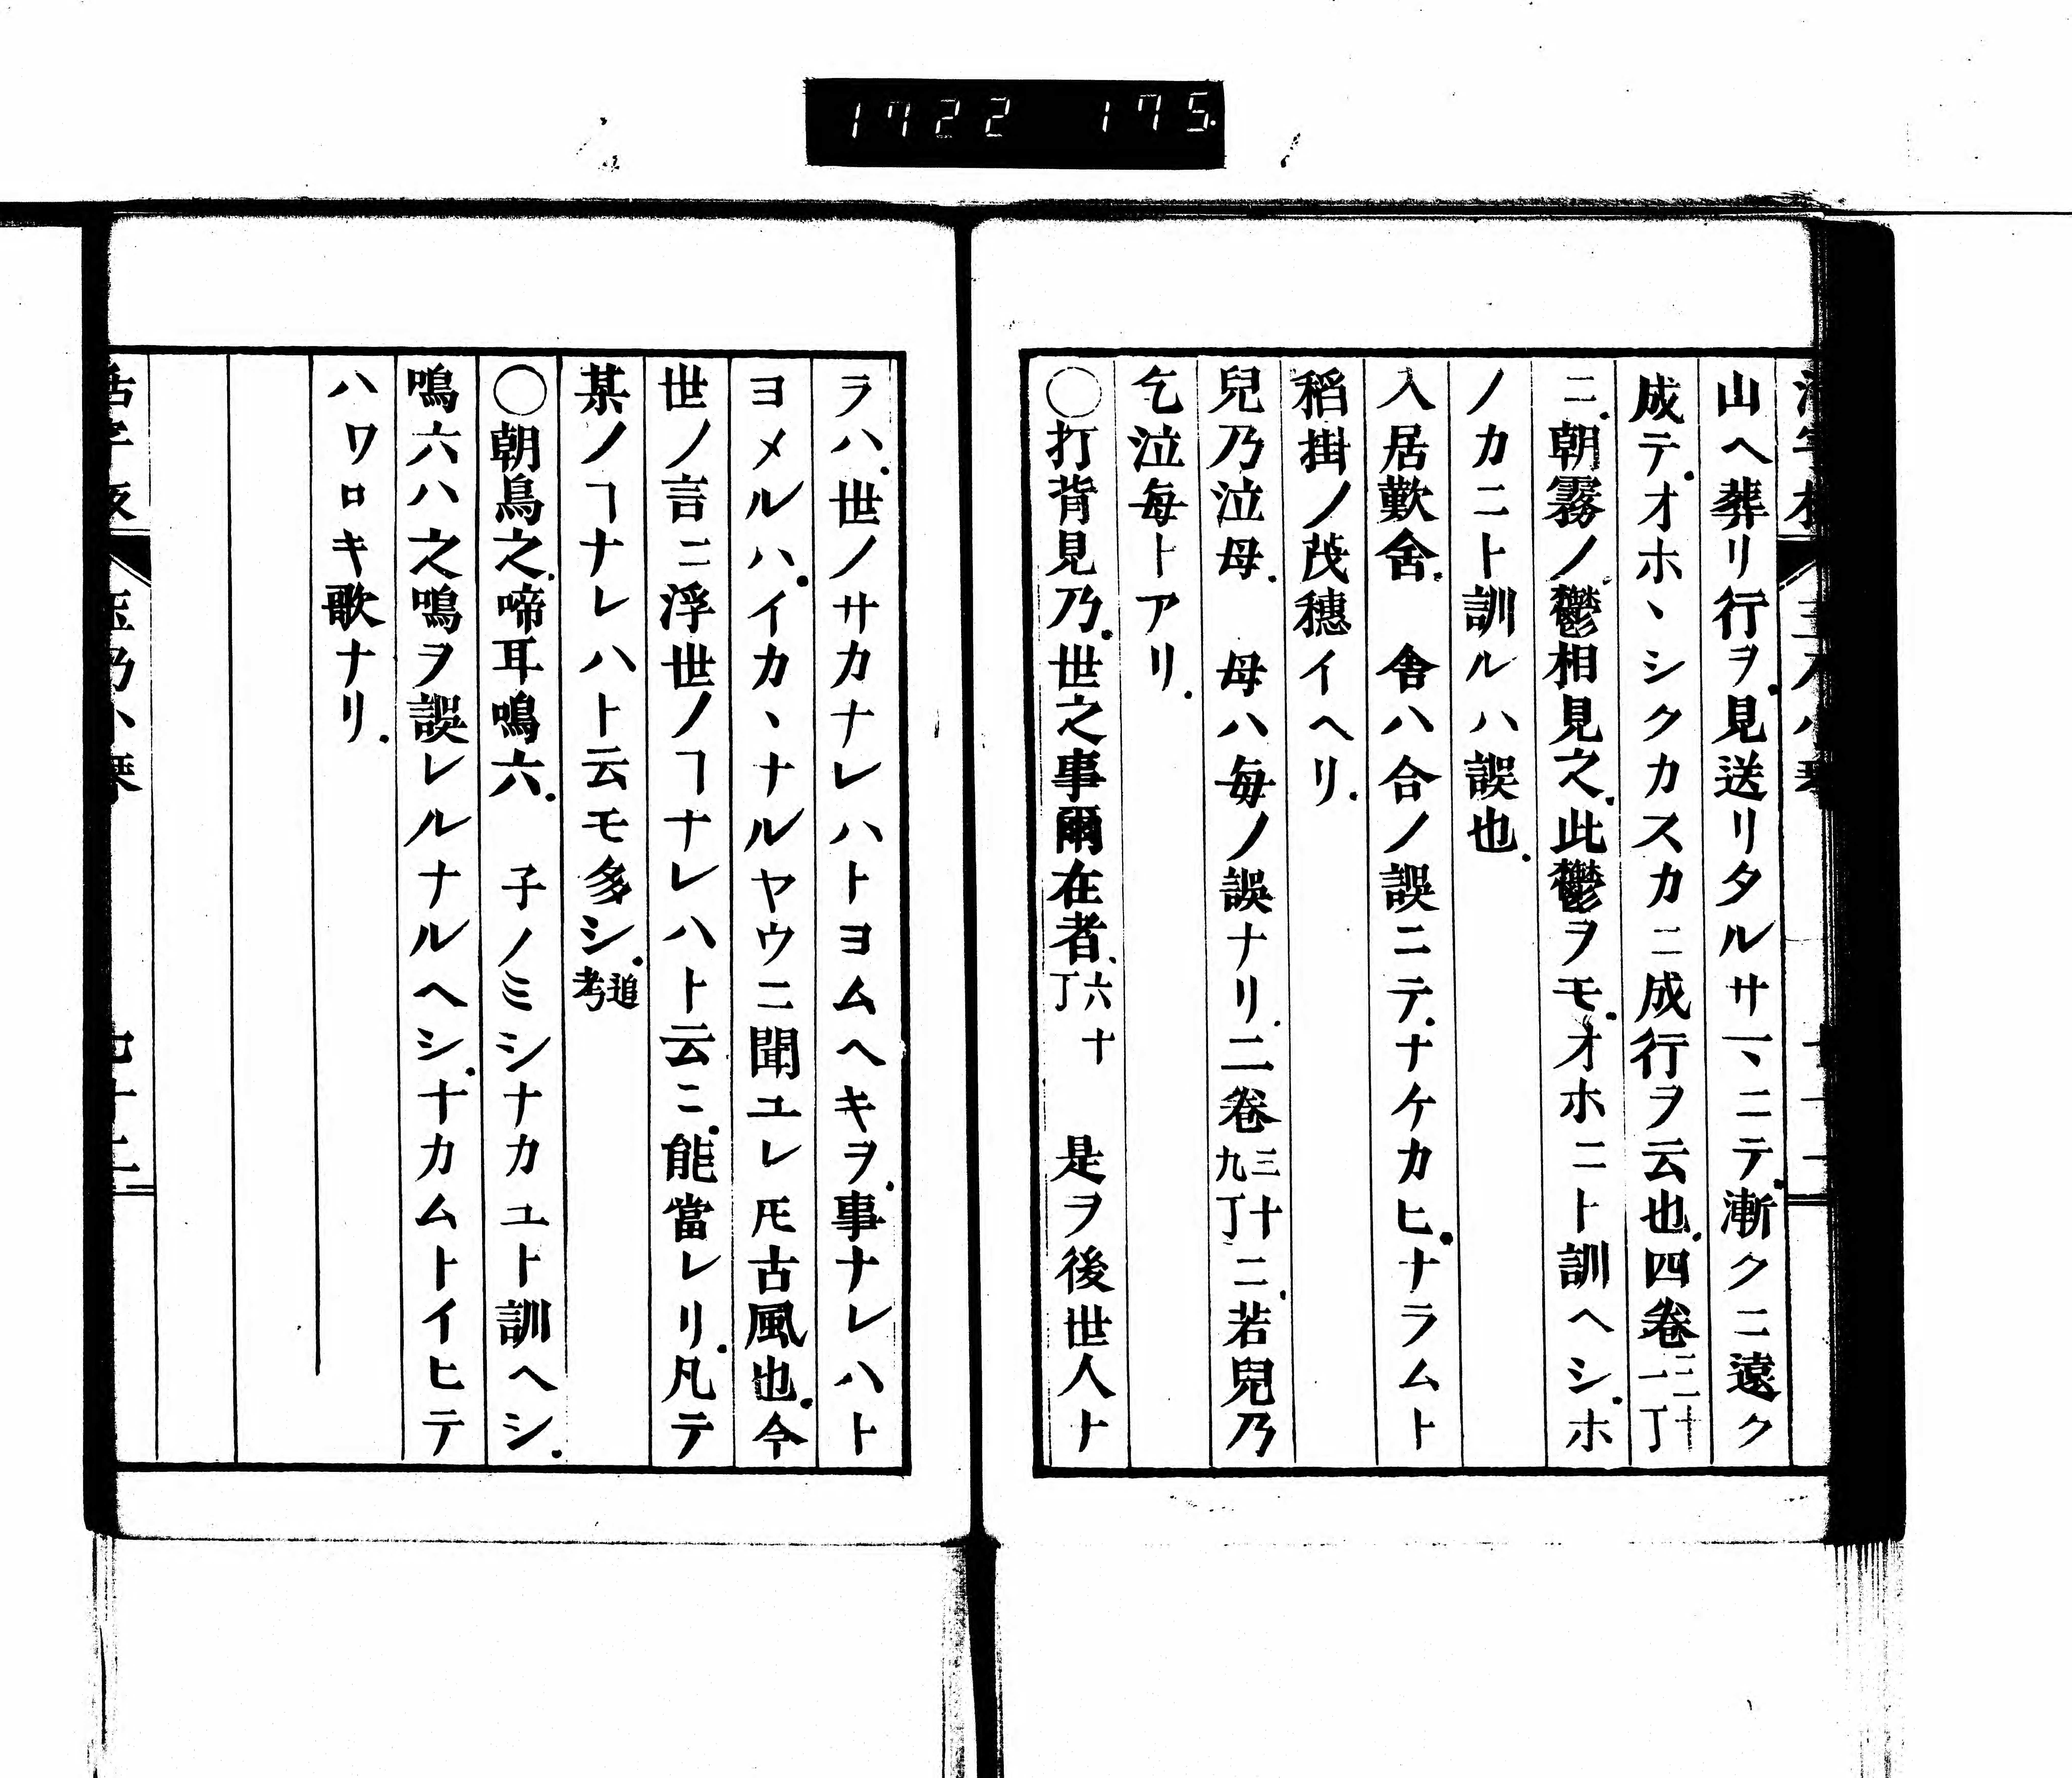 1722 175
山ヘ葬リ行ヲ.見送リタルサマヽニテ.漸クニ遠ク
成テ.オホヽシクカスカニ成行ヲ云也.四卷三十一丁
ニ.朝霧ノ鬱相見之.此鬱ヲモ.オホニト訓ヘシ.ホ
ノカニト訓ルハ誤也.
入居歎舍.　舍ハ合ノ誤ニテ.ナケカヒ.ナラムト
稻掛ノ茂穗イヘリ.
兒乃泣母.　母ハ毎ノ誤ナリ.二卷三十九丁ニ.若兒乃
乞泣毎トアリ.
〇打背見乃.世之事爾在者.六十丁　是ヲ後世人ト
ラハ.世ノサカナレハトヨムヘキヲ.事ナレハト
ヨメルハ.イカヽナルヤウニ聞ユレ𪜈古風也.今
世ノ言ニ浮世ノヿナレハト云ニ.能當レリ.凡テ
某ノヿナレハト云モ多シ.追考
〇朝鳥之.啼耳鳴六.　子ノミシナカユト訓ヘシ.
鳴六ハ之鳴ヲ誤レルナルヘシ.ナカムトイヒテ
ハワロキ歌ナリ.